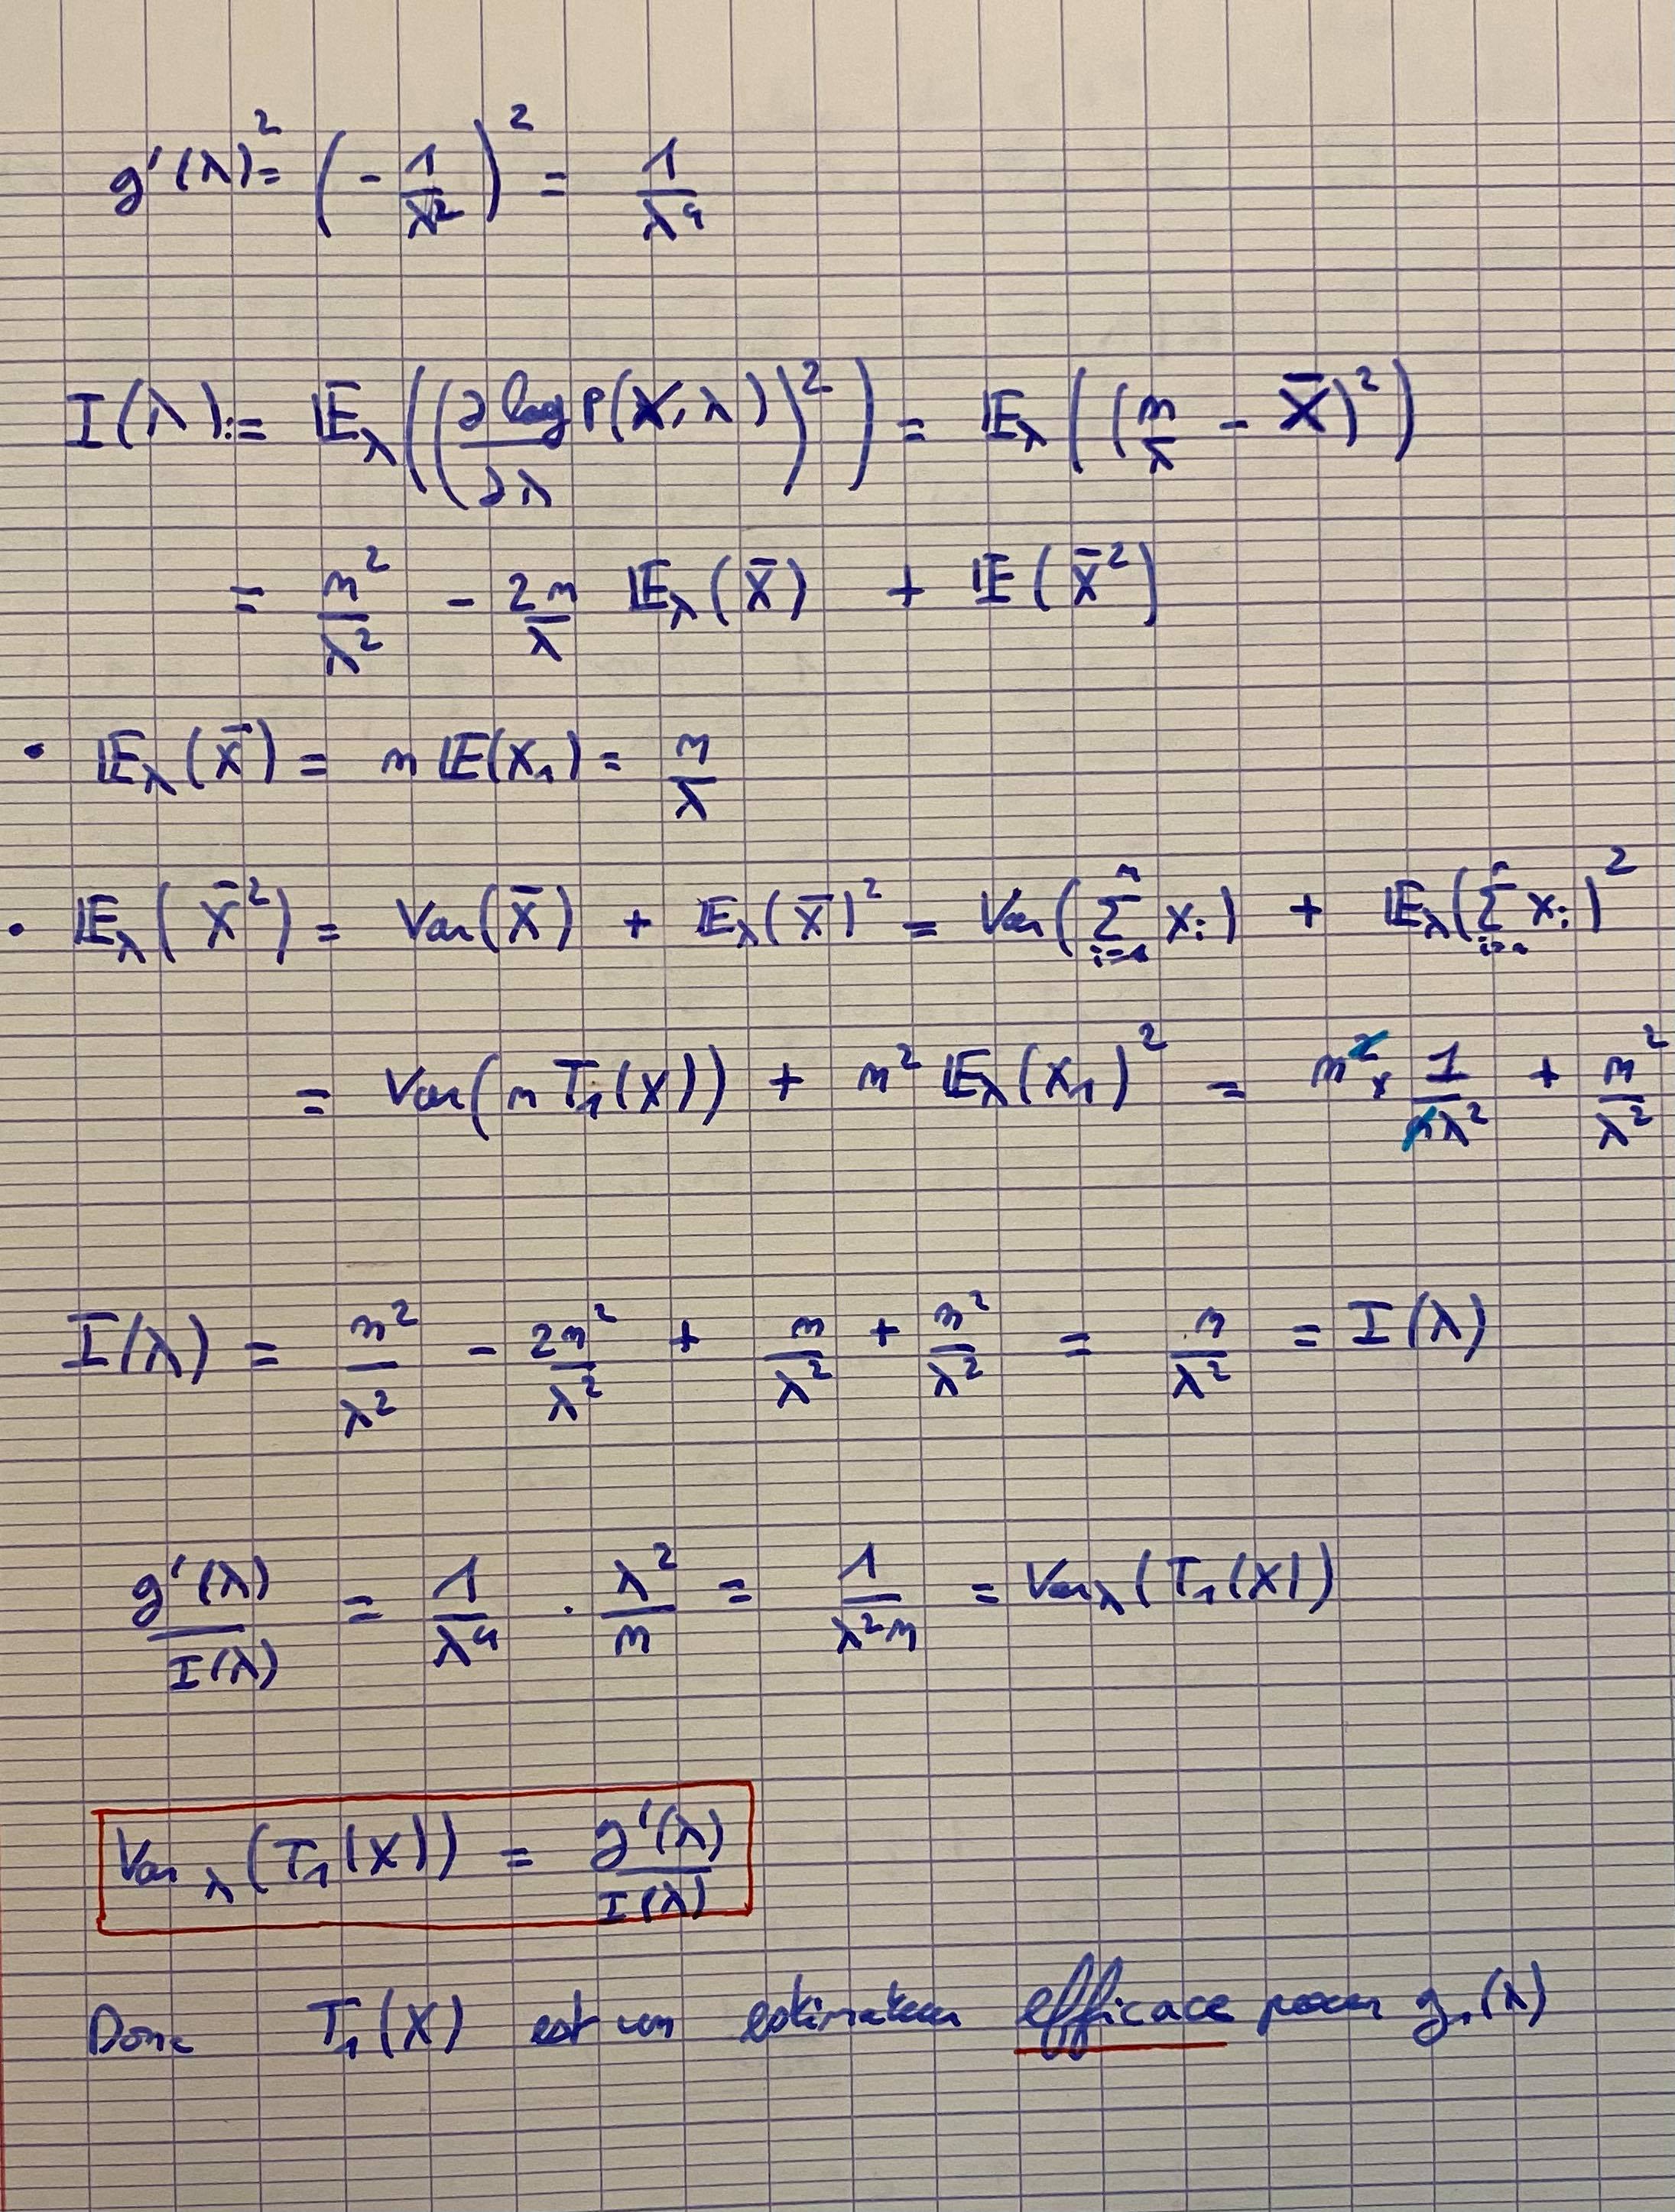 g'(λ)² = (-1/λ²)² = 1/λ⁴
I(λ) := 𝔼_λ((∂ log P(X, λ)/∂λ)²) = 𝔼_λ((n/λ - X̄)²)
= n²/λ² - 2n/λ 𝔼_λ(X̄) + 𝔼(X̄²)
• 𝔼_λ(X̄) = n 𝔼(X₁) = n/λ
• 𝔼_λ(X̄²) = Var(X̄) + 𝔼_λ(X̄)² = Var(∑_{i=1}^n X_i) + 𝔼_λ(∑_{i=1}^n X_i)²
= Var(n T₁(X)) + n² 𝔼_λ(X₁)² = n² × 1/(nλ²) + n²/λ²
I(λ) = n²/λ² - 2n²/λ² + n/λ² + n²/λ² = n/λ² = I(λ)
g'(λ)/I(λ) = 1/λ⁴ · λ²/n = 1/(λ²n) = Var_λ(T₁(X))
Var_λ(T₁(X)) = g'(λ)/I(λ)
Donc T₁(X) est un estimateur efficace pour g₁(λ)